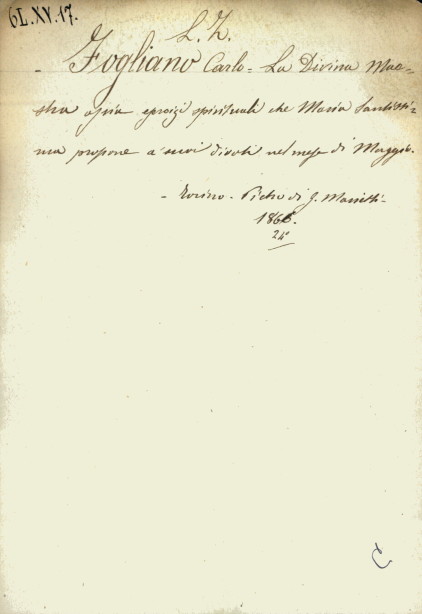 6L.XV.17.
L. Z.
- Fogliano Carlo - La Divina Mae=
stra ossia esercizi spirituali che Maria Santissi=
ma propone a' suoi divoti nel mese di Maggio.
- Torino - Pietro di G. Marietti -
186
24°
C